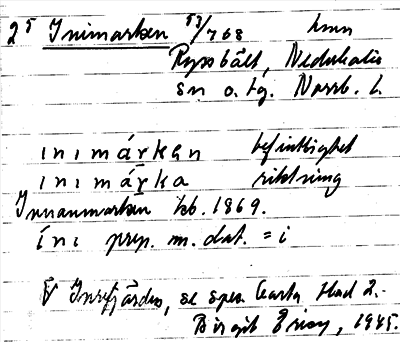 25 Inimarken 53/768 hmn
Ryssbält, Nederkalix
sn o. tg. Norrb. l.
inimárkan befintlighet
inimárka riktning
Innanmarken kb. 1869.
íni prep. m. dat. = i
V Inrefjärden, se spec. karta blad 2.
Birgit Erics, 1945.